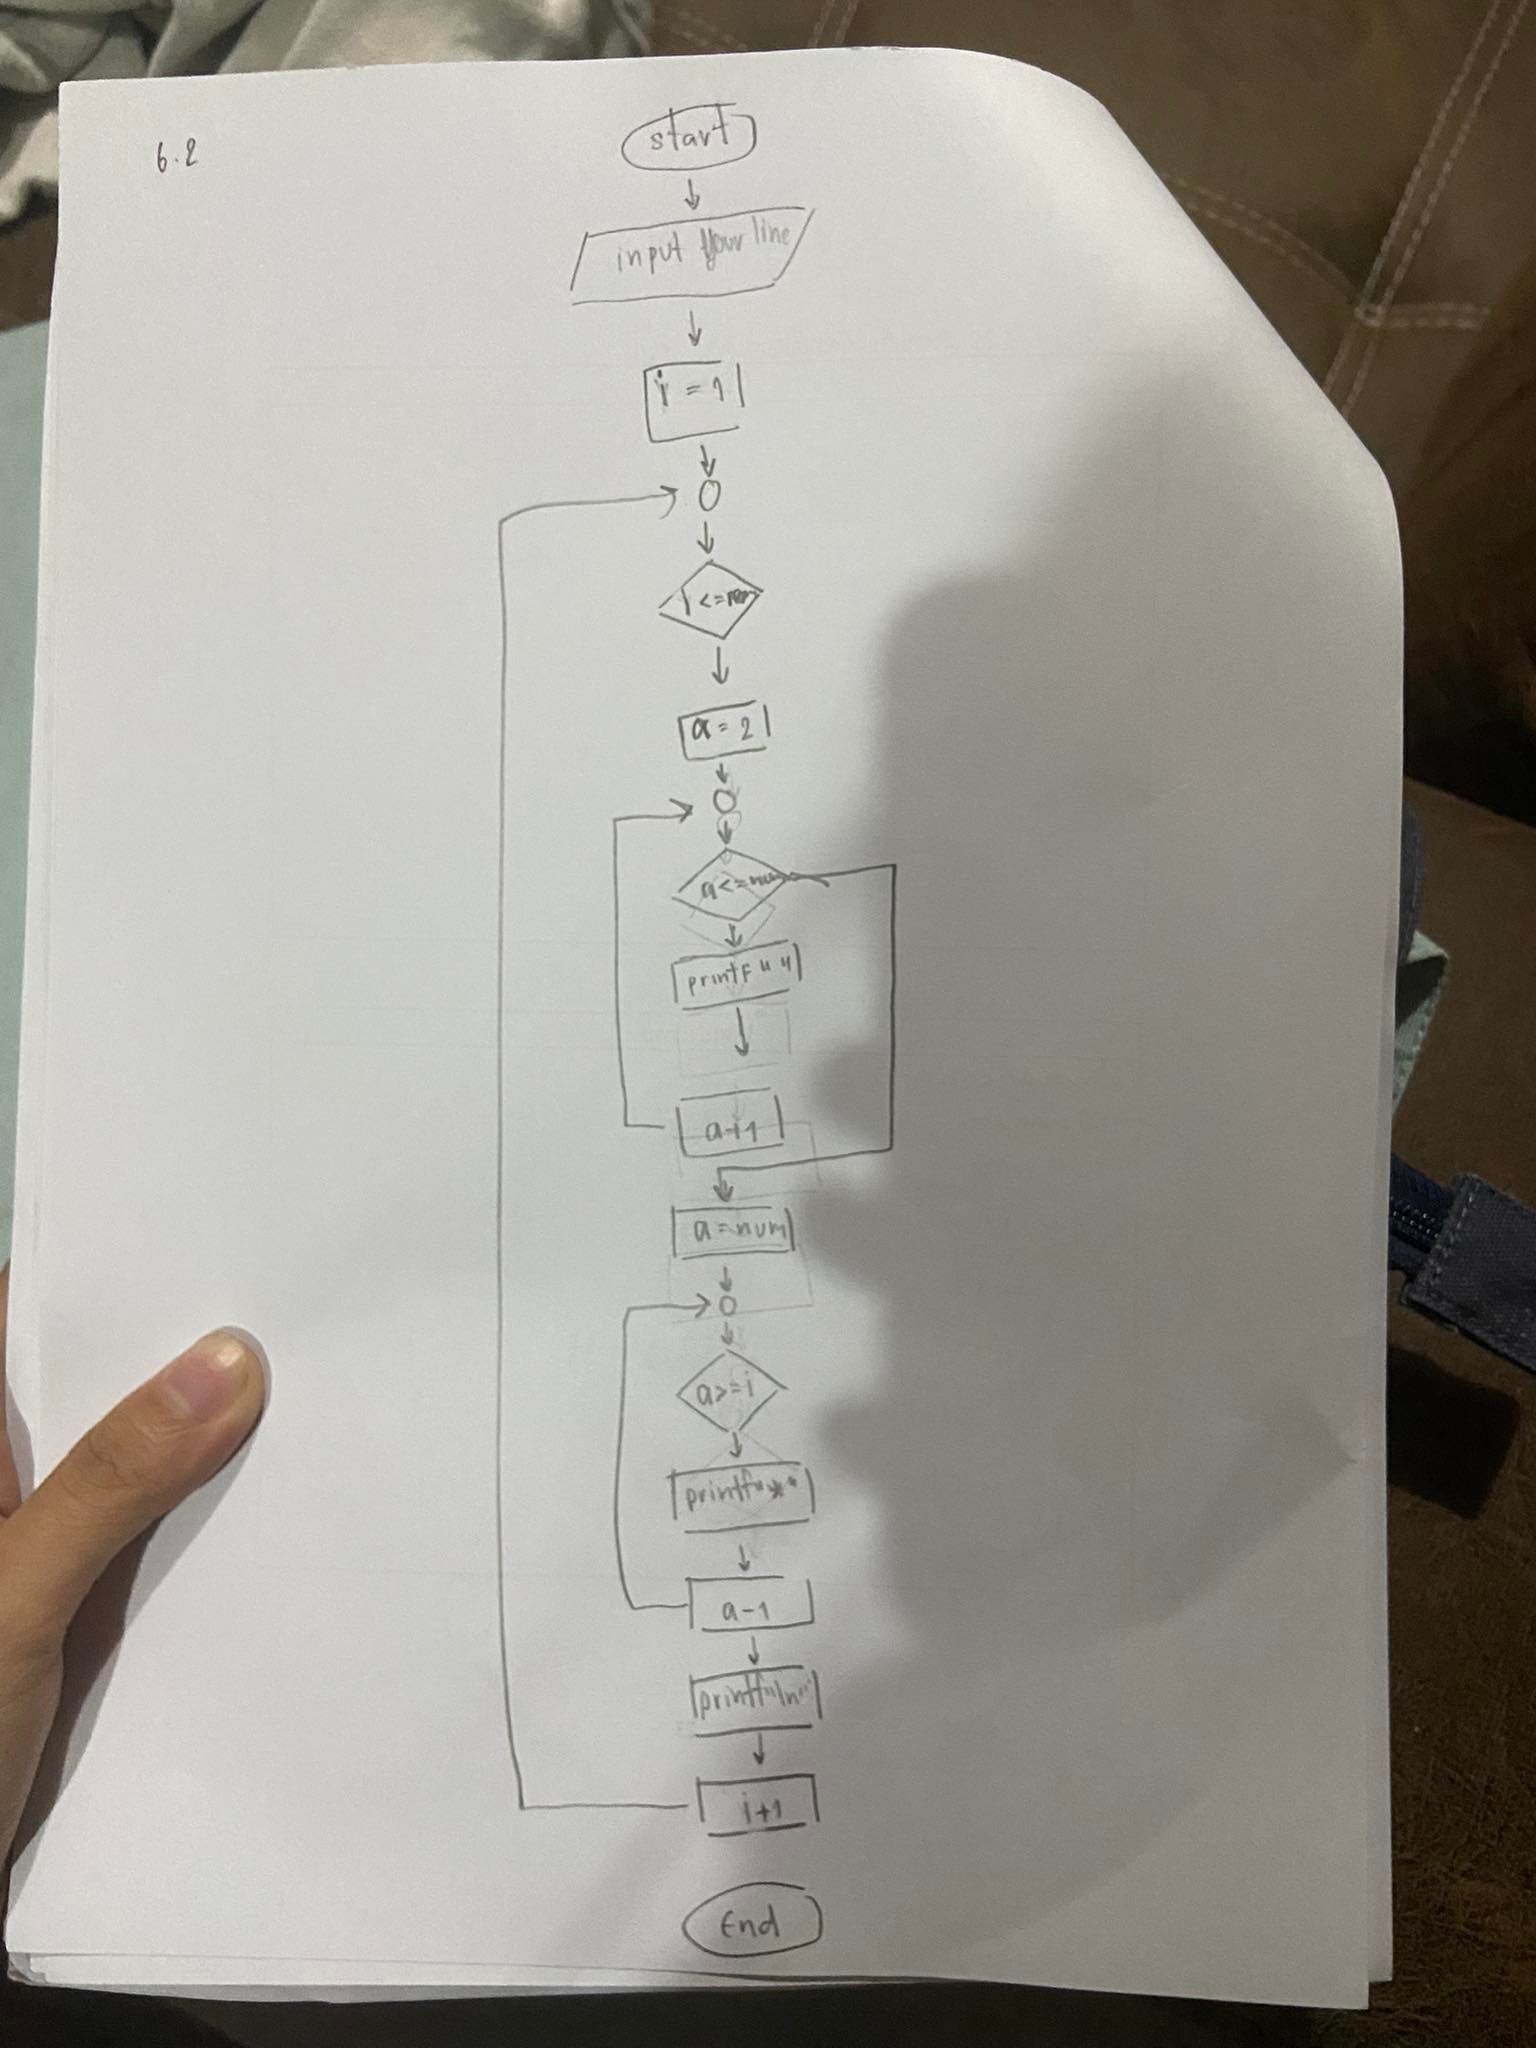 6.2
start
input your line
i = 1
i <= num
a = 2
a <= num
printf " "
a+1
a = num
a >= i
printf "*"
a-1
printf "\n"
i+1
End